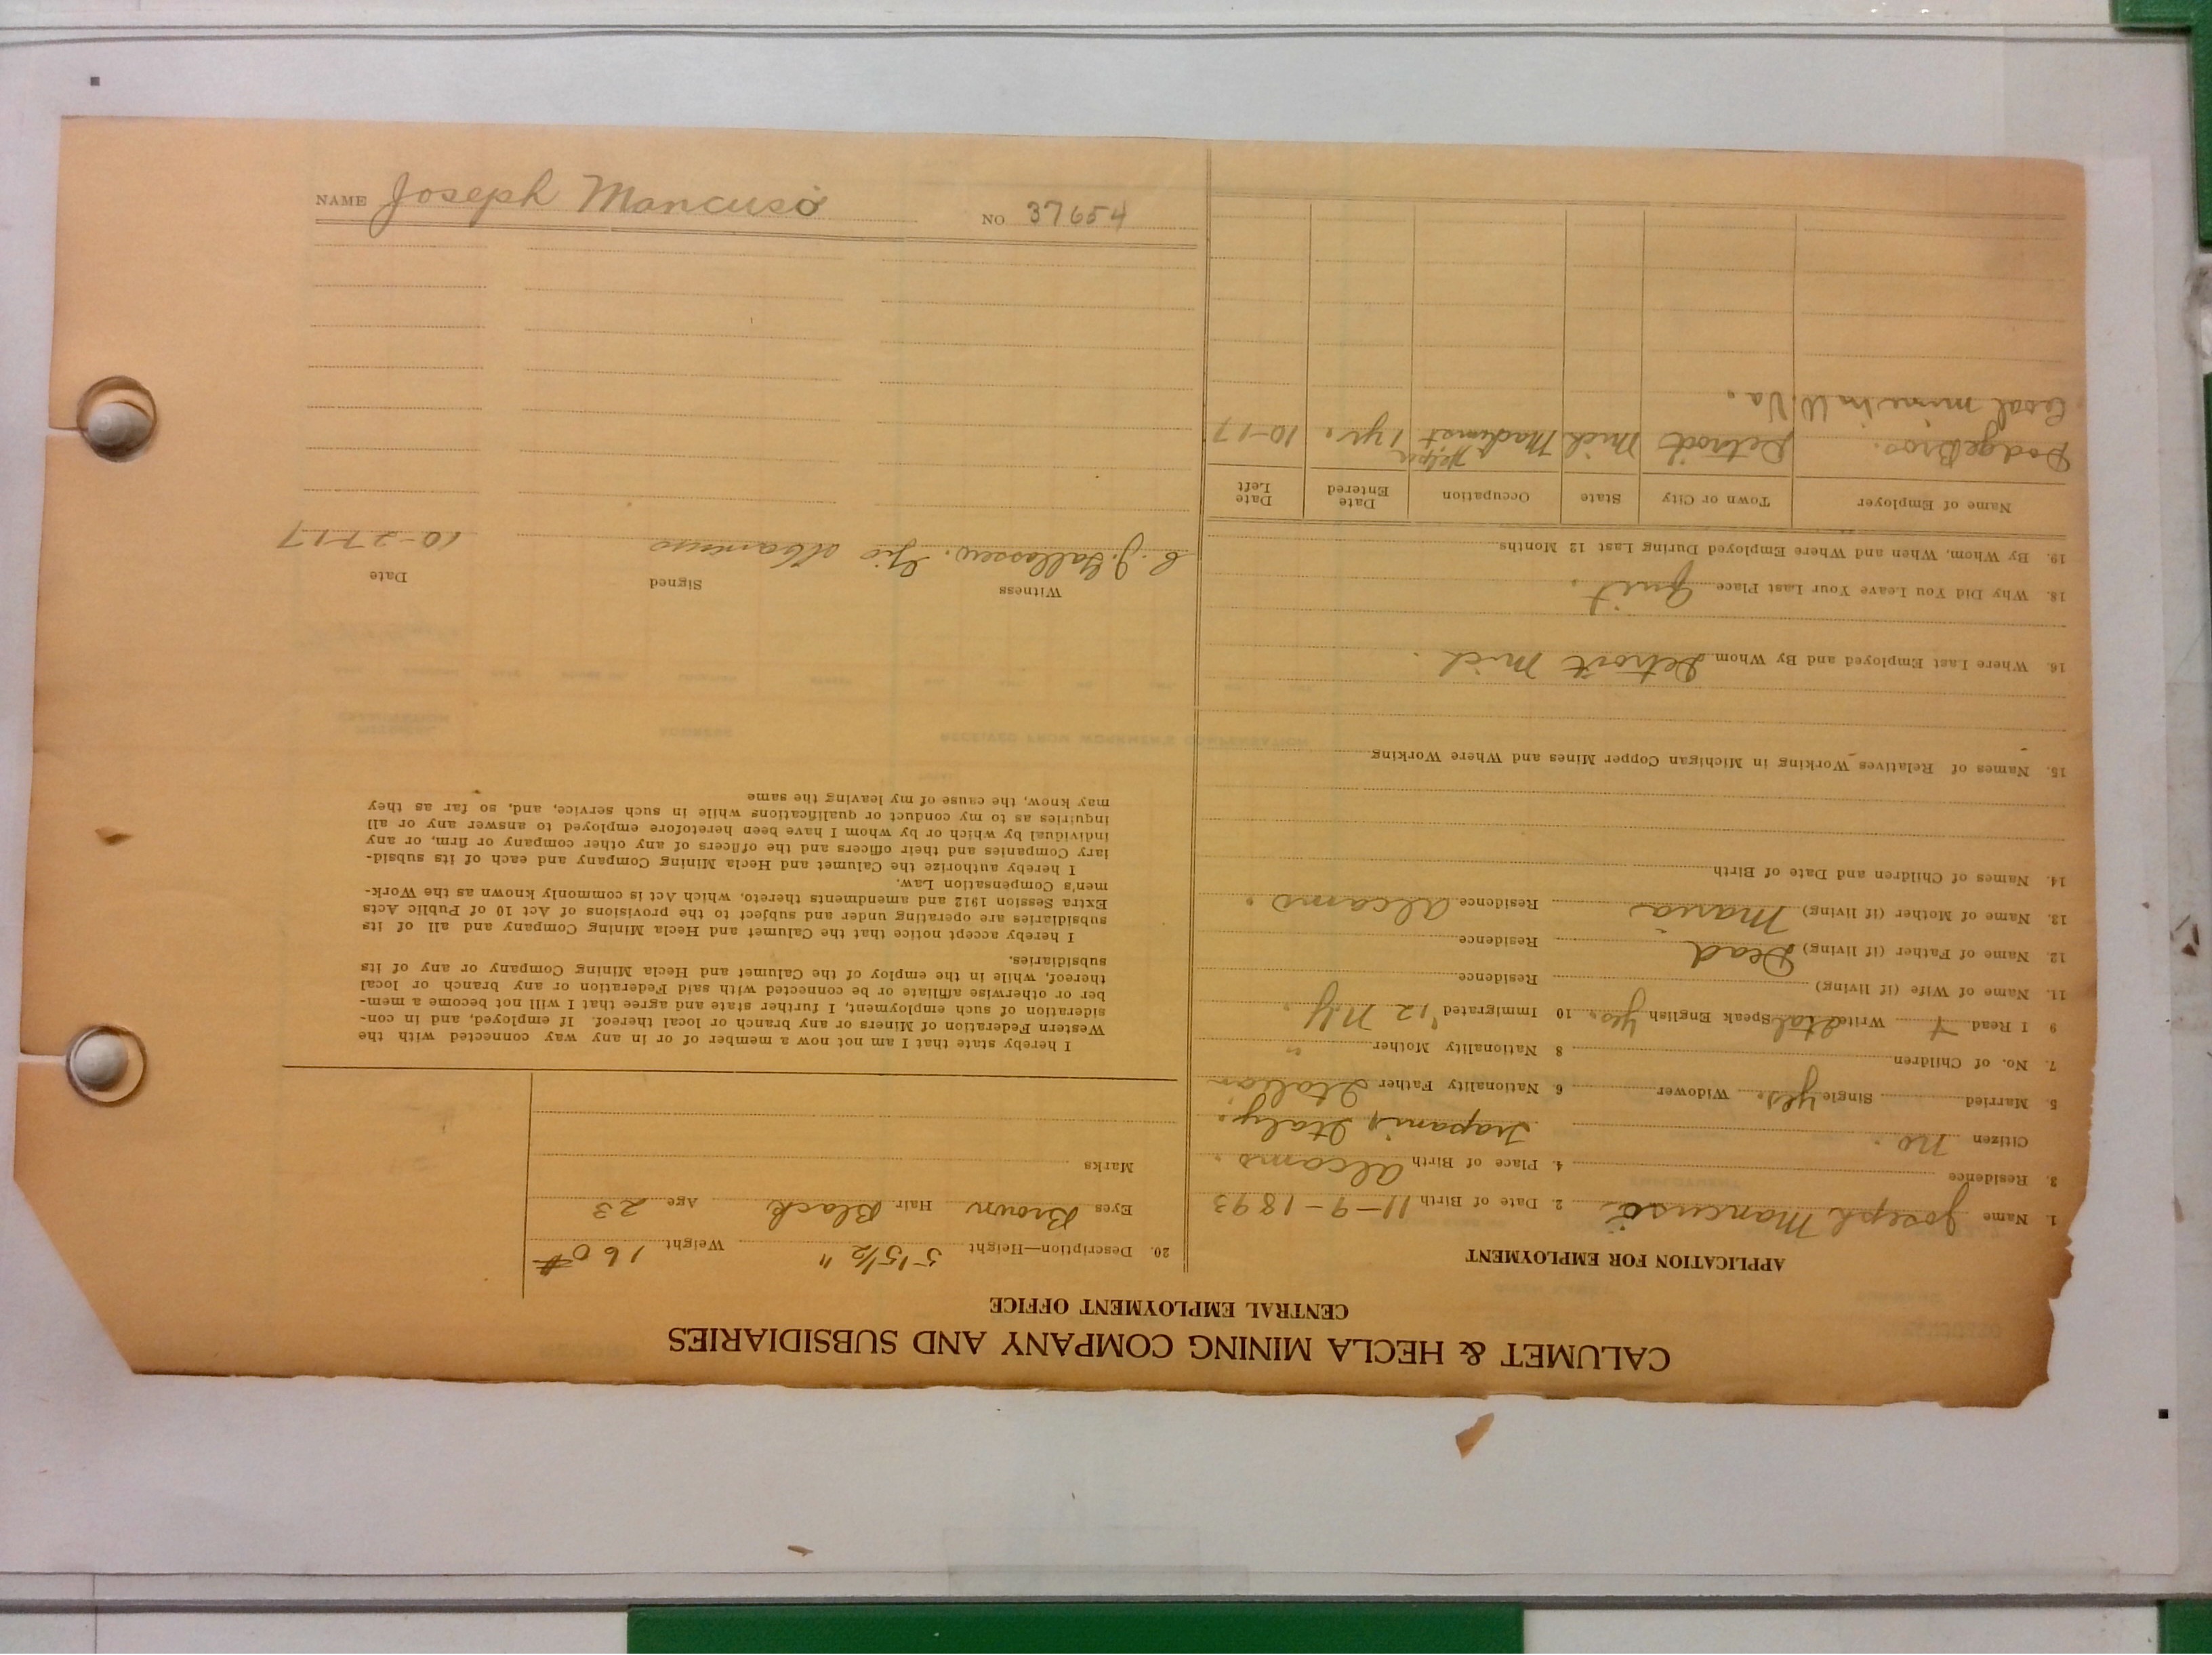 CALUMET & HECLA MINING COMPANY AND SUBSIDIARIES
CENTRAL EMPLOYMENT OFFICE
APPLICATION FOR EMPLOYMENT
1. Name Joseph Mancuso 2. Date of Birth 11-9-1893
3. Residence 4. Place of Birth Alcamo.
Citizen no. Trapani, Italy.
5. Married Single yes. Widower 6. Nationality Father Italian
7. No. of Children 8 Nationality Mother "
9 I Read + Write Ital Speak English yes. 10 Immigrated '12 N.Y.
11. Name of Wife (if living) Residence
12. Name of Father (if living) Dead Residence
13. Name of Mother (if living) Maria Residence Alcamo.
14. Names of Children and Date of Birth
15. Names of Relatives Working in Michigan Copper Mines and Where Working
16. Where Last Employed and By Whom Detroit Mich.
18. Why Did You Leave Your Last Place Quit.
19. By Whom, When and Where Employed During Last 12 Months
Name of Employer Town or City State Occupation Date Entered Date Left
Dodge Bros. Detroit Mich Machinist Helper 1 yr. 10-17
Coal mine in W. Va.
20. Description—Height 5'5 1/2" Weight 160#
Eyes Brown Hair Black Age 23
Marks
I hereby state that I am not now a member of or in any way connected with the
Western Federation of Miners or any branch or local thereof. If employed, and in con-
sideration of such employment, I further state and agree that I will not become a mem-
ber or otherwise affiliate or be connected with said Federation or any branch or local
thereof, while in the employ of the Calumet and Hecla Mining Company or any of its
subsidiaries.
I hereby accept notice that the Calumet and Hecla Mining Company and all of its
subsidiaries are operating under and subject to the provisions of Act 10 of Public Acts
Extra Session 1912 and amendments thereto, which Act is commonly known as the Work-
men's Compensation Law.
I hereby authorize the Calumet and Hecla Mining Company and each of its subsid-
iary Companies and their officers and the officers of any other company or firm, or any
individual by which or by whom I have been heretofore employed to answer any or all
inquiries as to my conduct or qualifications while in such service, and, so far as they
may know, the cause of my leaving the same
Witness Signed Date
C. J. Gio Mancuso 10-27-17
NAME Joseph Mancuso NO 37654